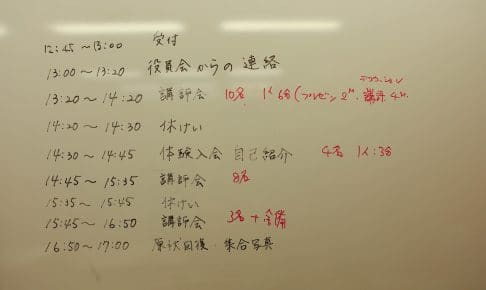 12:45～13:00 受付
13:00～13:20 役員会からの連絡
13:20～14:20 講評会 10名 1人6分(プレゼン2分、講評4分
14:20～14:30 休けい
14:30～14:45 体験入会 自己紹介 4名 1人:3分
14:45～15:35 講評会 8名
15:35～15:45 休けい
15:45～16:50 講評会 3名+
16:50～17:00 原状回復・集合写真